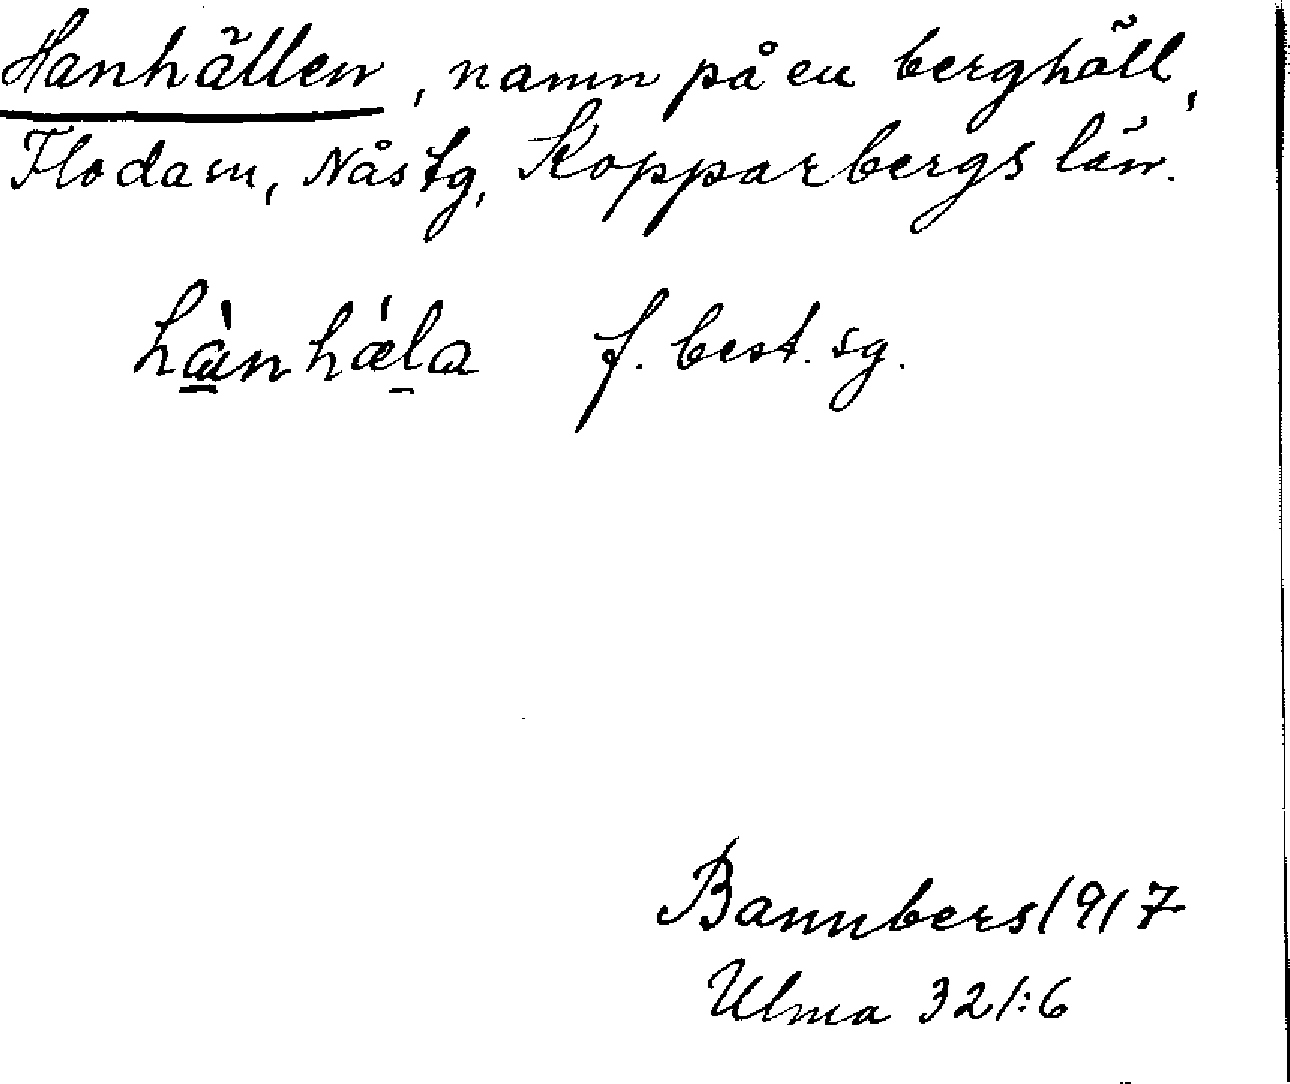 Hanhällen, namn på en berghäll,
Floda sn, Nås tg, Kopparbergs län.
hànhǽla f. best. sg.
Bannbers 1917
Ulma 321:6